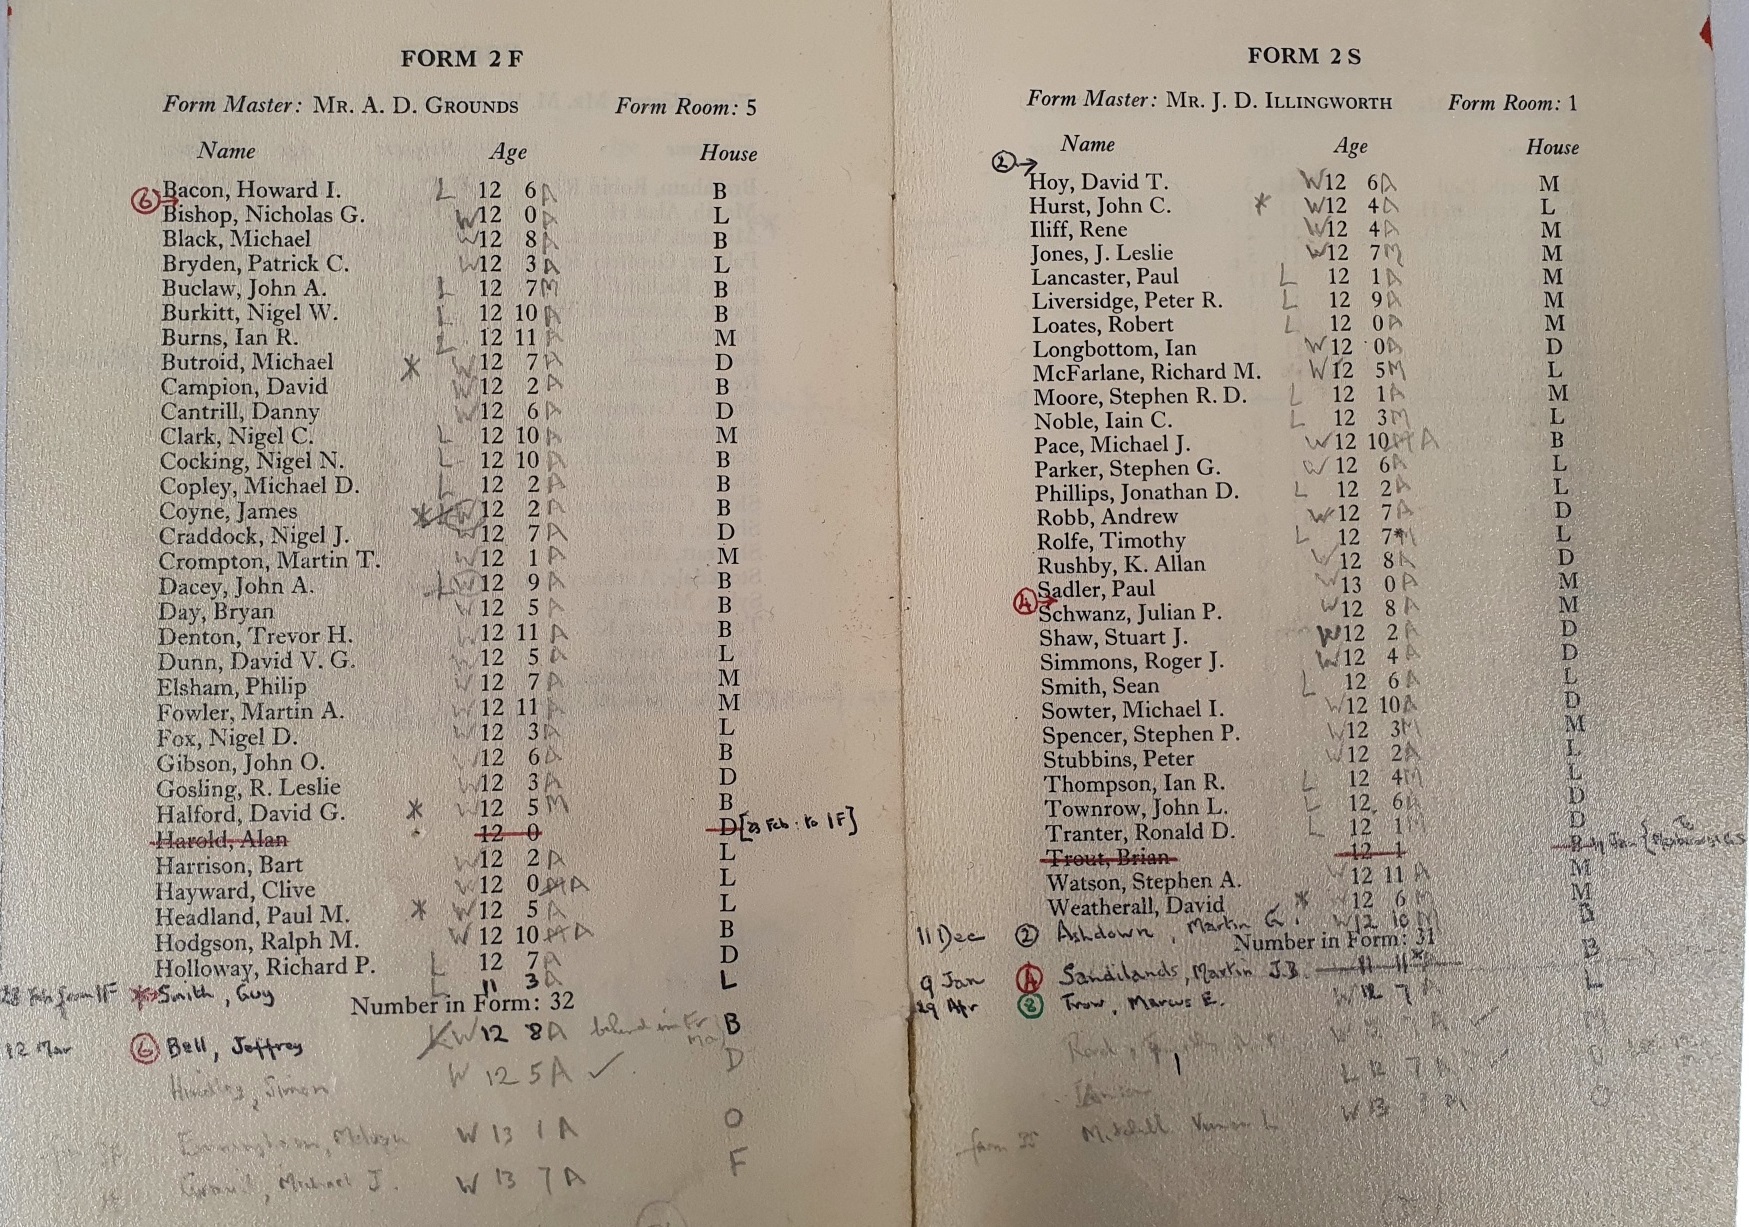 FORM 2 F
Form Master: MR. A. D. GROUNDS Form Room: 5
Name Age House
Bacon, Howard I. L 12 6 A B
⑥→
Bishop, Nicholas G. W 12 0 A L
Black, Michael W 12 8 A B
Bryden, Patrick C. W 12 3 A L
Buclaw, John A. L 12 7 M B
Burkitt, Nigel W. L 12 10 A B
Burns, Ian R. L 12 11 A M
Butroid, Michael * W 12 7 A D
Campion, David W 12 2 A B
Cantrill, Danny W 12 6 A D
Clark, Nigel C. L 12 10 A M
Cocking, Nigel N. L 12 10 A B
Copley, Michael D. L 12 2 A B
Coyne, James * W 12 2 A B
Craddock, Nigel J. W 12 7 A D
Crompton, Martin T. W 12 1 A M
Dacey, John A. L W 12 9 A B
Day, Bryan W 12 5 A B
Denton, Trevor H. W 12 11 A B
Dunn, David V. G. W 12 5 A L
Elsham, Philip W 12 7 A M
Fowler, Martin A. W 12 11 A M
Fox, Nigel D. W 12 3 A L
Gibson, John O. W 12 6 A B
Gosling, R. Leslie W 12 3 A D
Halford, David G. * W 12 5 M B
Harold, Alan 12 0 D [23 Feb: to 1F]
Harrison, Bart W 12 2 A L
Hayward, Clive W 12 0 M A L
Headland, Paul M. * W 12 5 A L
Hodgson, Ralph M. W 12 10 M A B
Holloway, Richard P. L 12 7 A D
23 Feb from 1F Smith, Guy L 11 3 A L
Number in Form: 32
12 Mar ⑥ Bell, Jeffrey W 12 8 A behind in Fr B
Simon W 12 5 A ✓ D
W 13 1 A O
Michael J. W 13 7 A F
FORM 2 S
Form Master: MR. J. D. ILLINGWORTH Form Room: 1
Name Age House
②→
Hoy, David T. W 12 6 A M
Hurst, John C. * W 12 4 A L
Iliff, Rene W 12 4 A M
Jones, J. Leslie W 12 7 M M
Lancaster, Paul L 12 1 A M
Liversidge, Peter R. L 12 9 A M
Loates, Robert L 12 0 A M
Longbottom, Ian W 12 0 A D
McFarlane, Richard M. W 12 5 M L
Moore, Stephen R. D. L 12 1 A M
Noble, Iain C. L 12 3 M L
Pace, Michael J. W 12 10 M A B
Parker, Stephen G. W 12 6 A L
Phillips, Jonathan D. L 12 2 A L
Robb, Andrew W 12 7 A D
Rolfe, Timothy L 12 7 M L
Rushby, K. Allan W 12 8 A D
Sadler, Paul W 13 0 A M
④→
Schwanz, Julian P. W 12 8 A M
Shaw, Stuart J. W 12 2 A D
Simmons, Roger J. W 12 4 A D
Smith, Sean L 12 6 A L
Sowter, Michael I. W 12 10 A D
Spencer, Stephen P. W 12 3 M M
Stubbins, Peter W 12 2 A L
Thompson, Ian R. L 12 4 M L
Townrow, John L. L 12 6 A D
Tranter, Ronald D. L 12 1 M D
Trout, Brian 12 1 B
Watson, Stephen A. W 12 11 A M
Weatherall, David * W 12 6 M M
11 Dec ② Ashdown, Martin G. W 12 10 M B
Number in Form: 31
9 Jan ④ Sandilands, Martin J.B. 11 11 B
29 Apr ⑧ Trow, Marcus E. W 12 7 A L
L 12 7 A
Mitchell W 13 M O